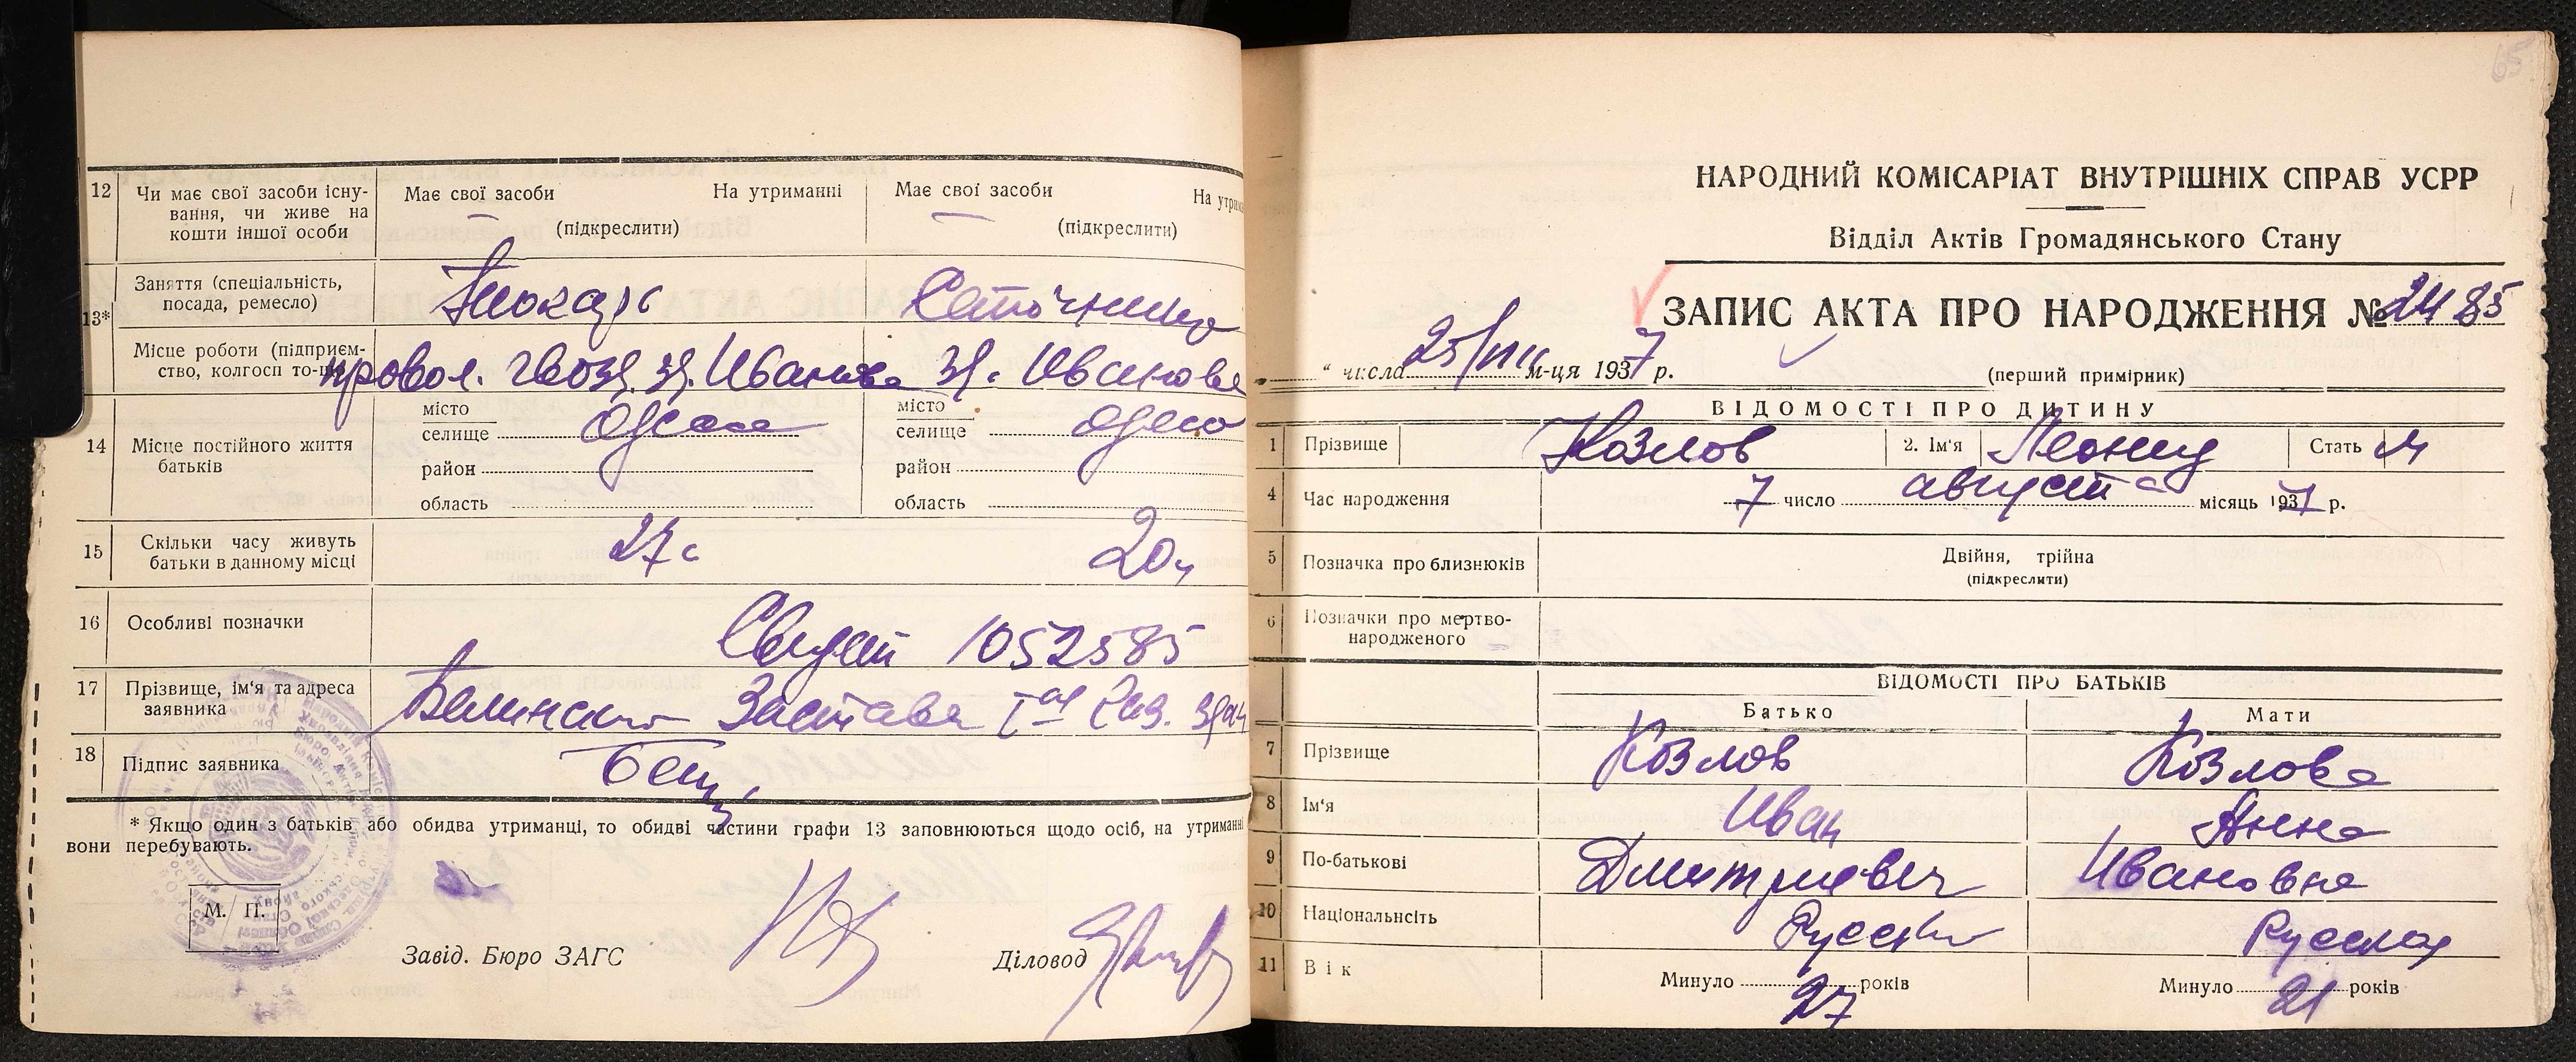 12 Чи має свої засоби існування, чи живе на кошти іншої особи
Має свої засоби На утриманні
(підкреслити)
Має свої засоби На утрим
(підкреслити)
13* Заняття (спеціальність, посада, ремесло)
Токарь
Сеточница
Місце роботи (підприємство, колгосп то-що)
провол. гвозд. зд. Иванова зд. Иванова
14 Місце постійного життя батьків
місто
селище Одесса
район
область
місто
селище Одесса
район
область
15 Скільки часу живуть батьки в данному місці
27 20
16 Особливі позначки
Свидет 1052585
17 Прізвище, ім'я та адреса заявника
Застава
18 Підпис заявника
* Якщо один з батьків або обидва утриманці, то обидві частини графи 13 заповнюються щодо осіб, на утриманні
вони перебувають.
М. П.
Завід. Бюро ЗАГС
Діловод
65
НАРОДНИЙ КОМІСАРІАТ ВНУТРІШНІХ СПРАВ УСРР
Відділ Актів Громадянського Стану
ЗАПИС АКТА ПРО НАРОДЖЕННЯ № 2485
" числа 25/VIII м-ця 1937 р.
(перший примірник)
ВІДОМОСТІ ПРО ДИТИНУ
1 Прізвище Козлов 2. Ім'я Леонид Стать М
4 Час народження 7 число августа місяць 1937 р.
5 Позначка про близнюків Двійня, трійня
(підкреслити)
6 Позначки про мертвонародженого
ВІДОМОСТІ ПРО БАТЬКІВ
Батько Мати
7 Прізвище Козлов Козлова
8 Ім'я Иван Анна
9 По-батькові Дмитриевич Ивановна
10 Національність Русский Русская
11 Вік Минуло 27 років Минуло 21 років